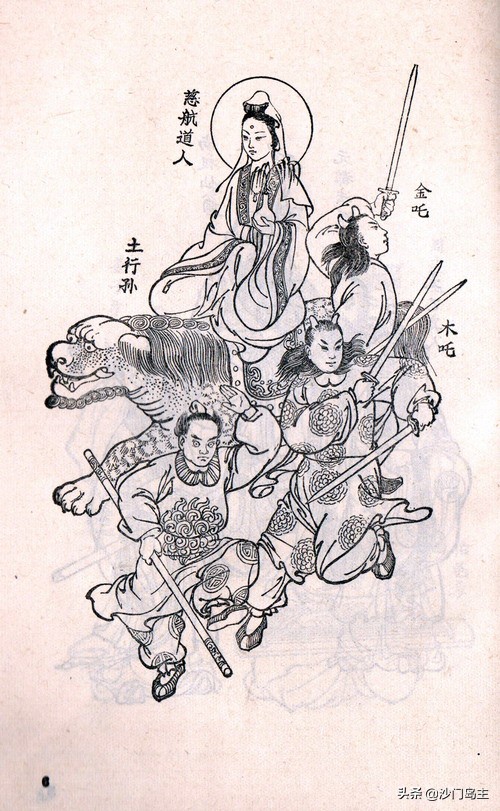 慈航道人
金吒
土行孙
木吒
6
头条 @沙门岛主